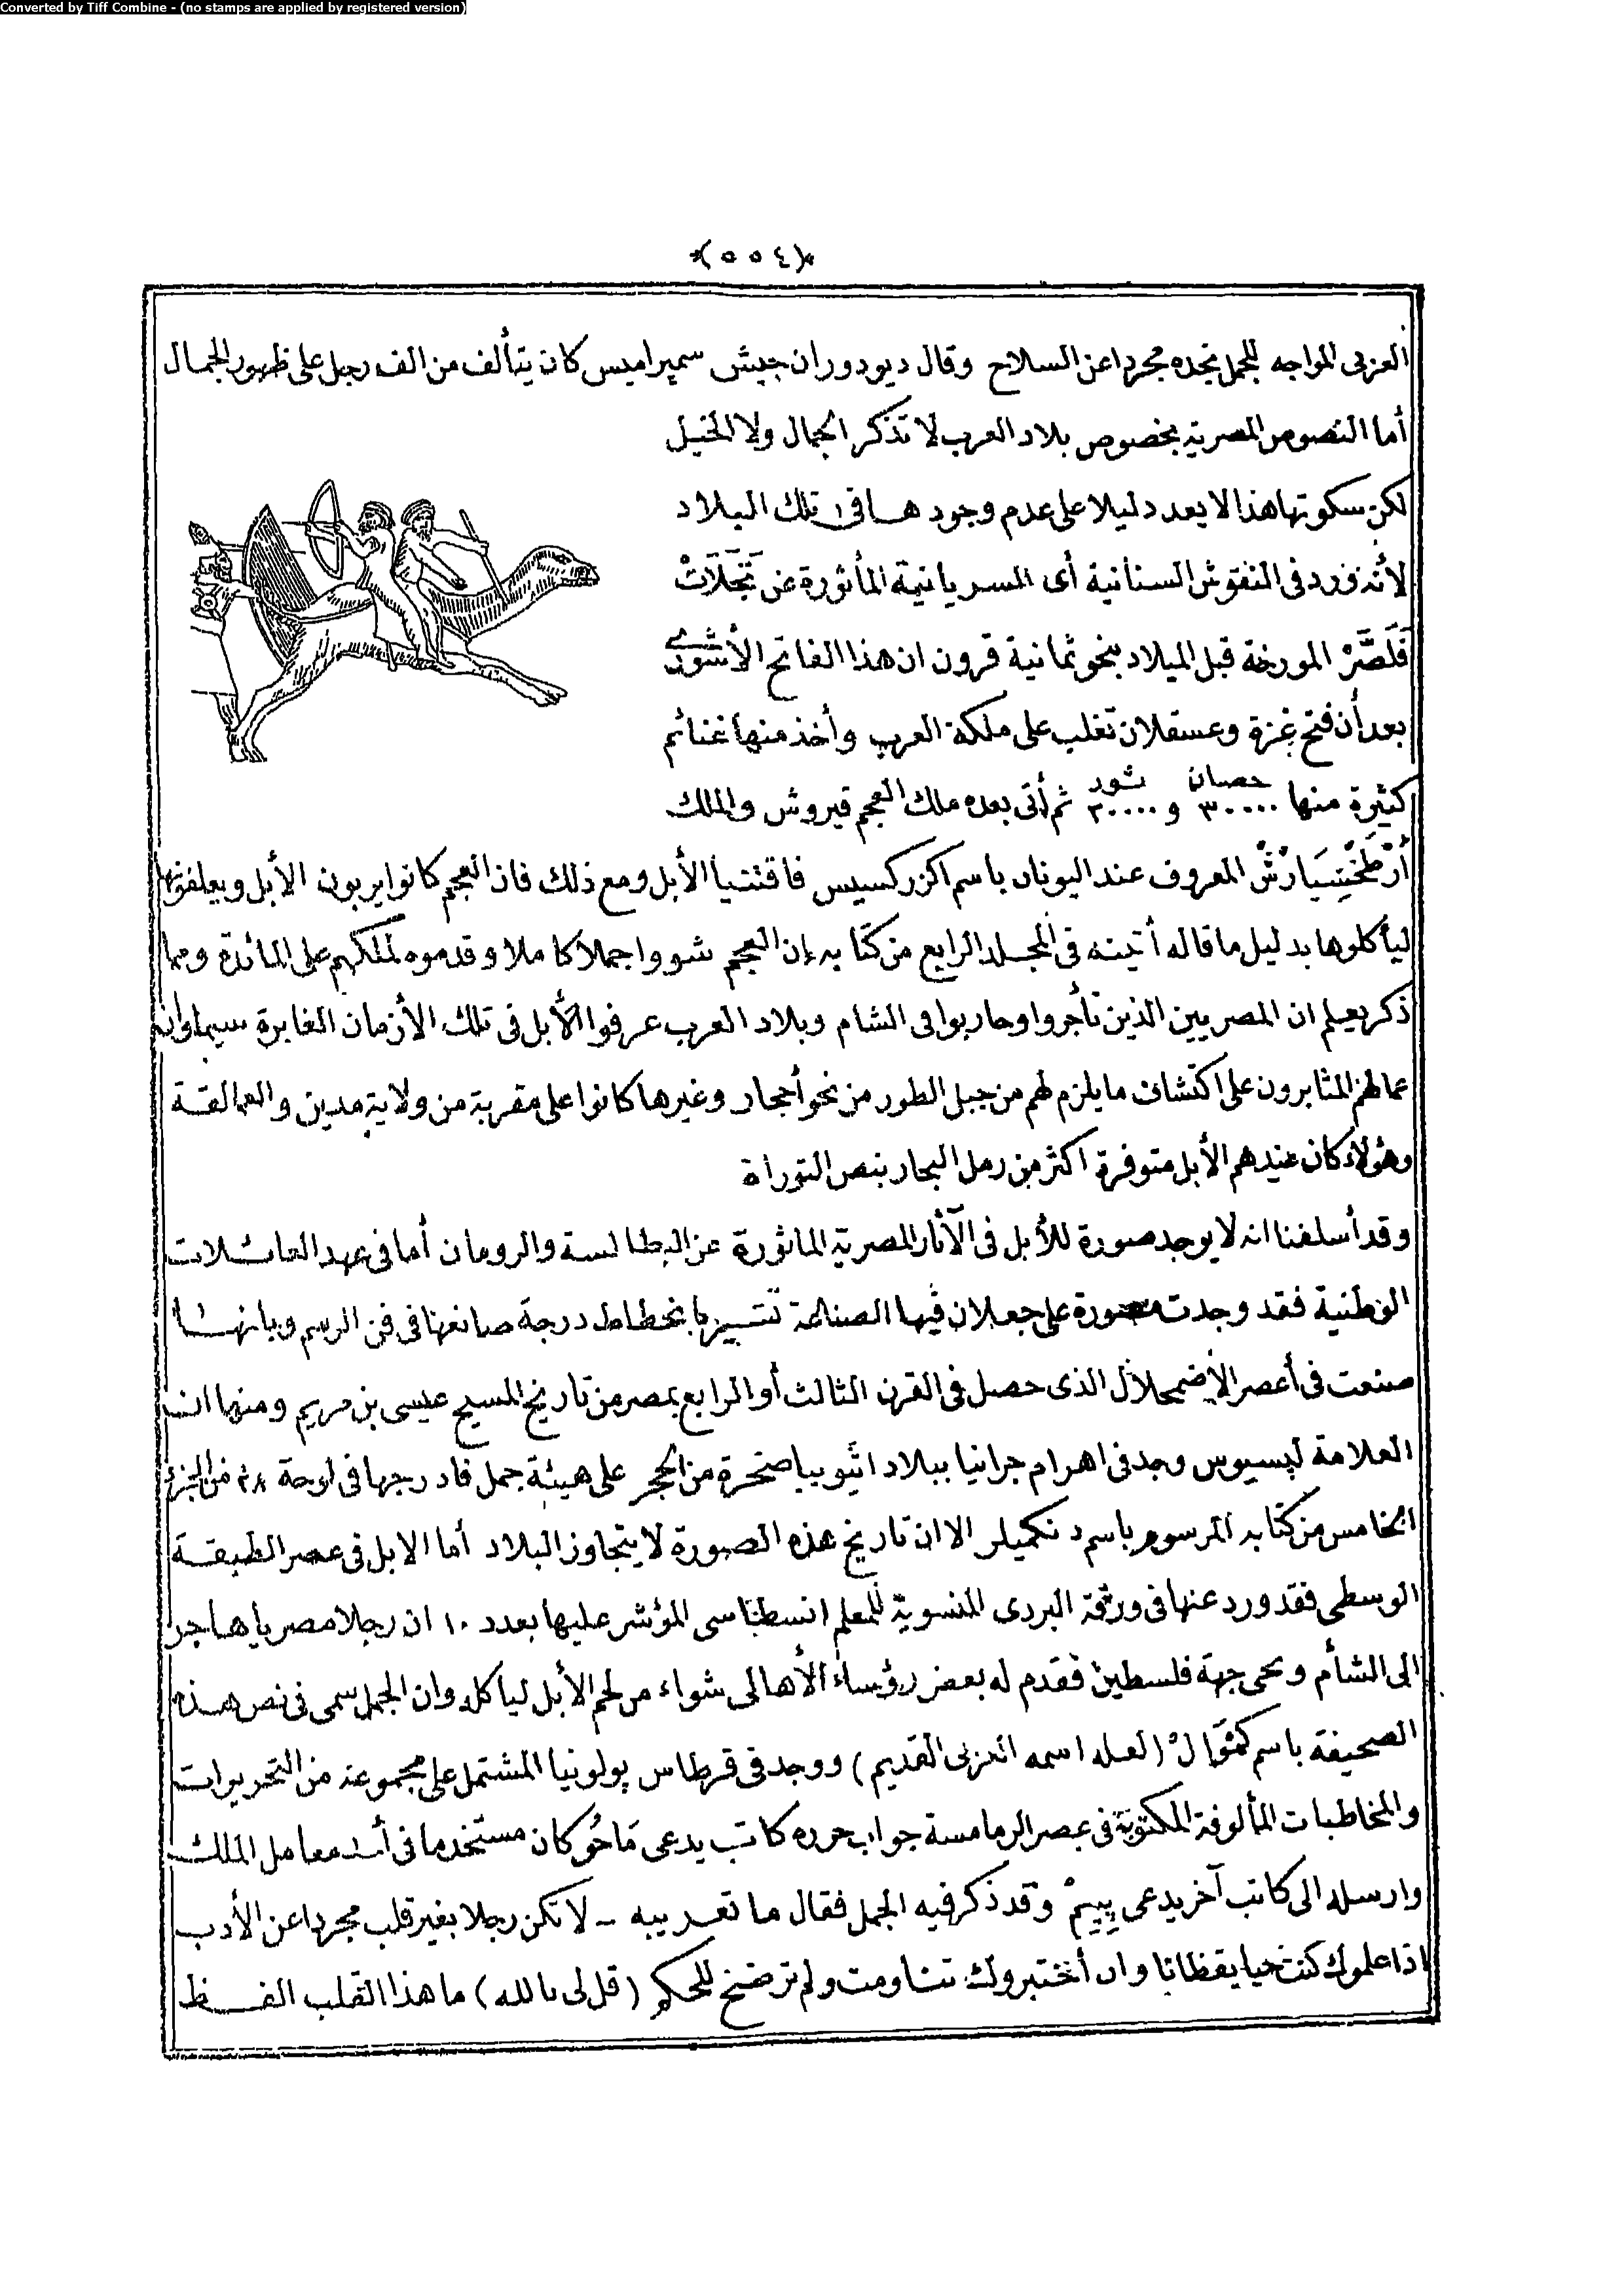 Converted by Tiff Combine - (no stamps are applied by registered version)
*(٥٥٤)*
العربى المواجه للجمل تجده مجردا عن السلاح وقال ديودور ان جيش سميراميس كان يتألف من الف رجل على ظهور الجمال
أما النصوص المصرية بخصوص بلاد العرب لا تذكر الجمال ولا الخيل
لكن سكوتها هذا لا يعد دليلا على عدم وجود هـا فى تلك البلاد
لأنه ورد فى النقوش السنانية أى السريانية المأثورة عن تَجَلَاتْ
فَلَصَّرْ المورخة قبل الميلاد بنحو ثمانية قرون ان هذا الفاتح الأشورى
بعد أن فتح غزة وعسقلان تغلب على ملكة العرب وأخذ منها غنائم
كثيرة منها ٣٠٠٠٠ حصان و ٢٠٠٠٠ ثور ثم أتى بعده ملك العجم قيروش والملك
أَرْطَخْشِيَارْشْ المعروف عند اليونان باسم اكزركسيس فاقتنيا الأبل ومع ذلك فان العجم كانوا يربون الأبل ويعلفونها
ليأكلوها بدليل ما قاله أتينه فى المجلد الرابع من كتابه إن العجم شووا جملا كاملا وقدموه لملكهم على المائدة ومما
ذكر يعلم ان المصريين الذين تأجروا وحاربوا فى الشام وبلاد العرب عرفوا الأبل فى تلك الأزمان الغابرة سيما وانه
عمالهم المثابرون على اكتشاف ما يلزم لهم من جبل الطور من نحو أحجار وغيرها كانوا على مقربة من ولاية مدين والعمالقة
وهؤلاء كان عندهم الأبل متوفرة اكثر من رمل البحار بنص التوراة
وقد أسلفنا انه لا يوجد صورة للأبل فى الآثار المصرية الماثورة عن البطالسة والرومان أما فى عهد العائلات
الوطنية فقد وجدت مصورة على جعلان فيها الصناعة تتميز بانحطاط درجة صانعها فى فن الرسم وبانهـا
صنعت فى أعصر الأضمحلال الذى حصل فى القرن الثالث أو الرابع بمصر من تاريخ المسيح عيسى بن مريم ومنها ان
العلامة ليسيوس وجد فى اهرام جرانيا ببلاد اثيوبيا صخرة من الحجر على هيئة جمل فادرجها فى لوحة ٢٨ من الجزء
الخامس من كتابه المرسوم باسم دنكميلر الا ان تاريخ هذه الصورة لا يتجاوز البلاد أما الابل فى عصر الطبقـة
الوسطى فقد ورد عنها فى ورقة البردى المنسوبة للمعلم انسطاسى المؤشر عليها بعدد ١٠ ان رجلا مصريا هاجر
الى الشأم ونحى جهة فلسطين فقدم له بعض رؤساء الأهالى شواء من لحم الأبل لياكله وان الجمل سمى فى نص هـذه
الصحيفة باسم كَمْوَالْ (لعله اسمه العربى القديم) ووجد فى قرطاس بولونيا المشتمل على مجموعة من التحريرات
والمخاطبات المألوفة المكتوبة فى عصر الرمامسة جواب حرره كاتب يدعى مَاحُو كان مستخدما فى أحد معامل الملك
وارسله الى كاتب آخر يدعى بِيبِمْ وقد ذكر فيه الجمل فقال ما تعريبه ـ لا تكن رجلا بغير قلب مجردا عن الأدب
اذا علموك كنت حيا يقظانا وان أختبروك تناومت ولم ترضخ للحكم (قل لى بالله) ما هذا القلب الفـظ